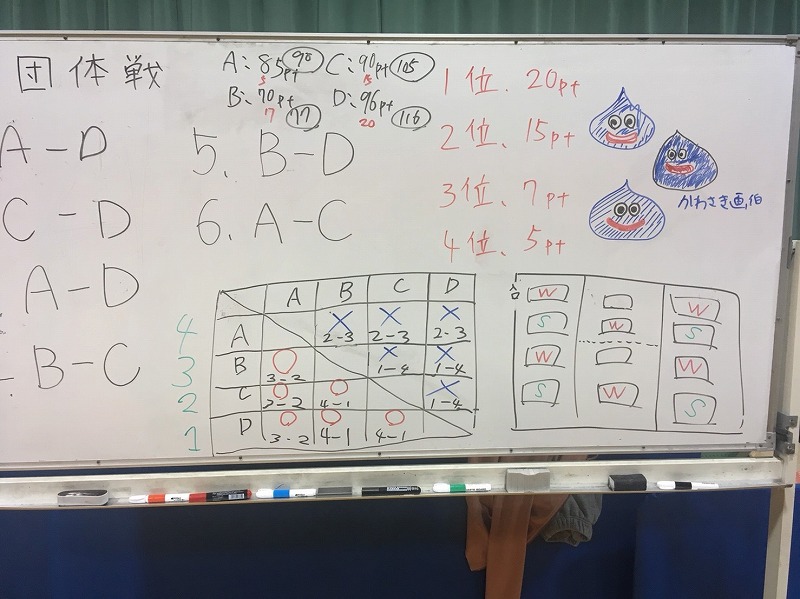 団体戦
A:85pt 90 C:90pt 105
5 15
B:70pt 77 D:96pt 116
7 20
A-D
C-D
A-D
B-C
5. B-D
6. A-C
1位、20pt
2位、15pt
3位、7pt
4位、5pt
かわさき画伯
A B C D
4 A × 2-3 × 2-3 × 2-3
3 B ○ 3-2 × 1-4 × 1-4
2 C ○ 3-2 ○ 4-1 × 1-4
1 D ○ 3-2 ○ 4-1 ○ 4-1
W W
S W S
W W
S W S